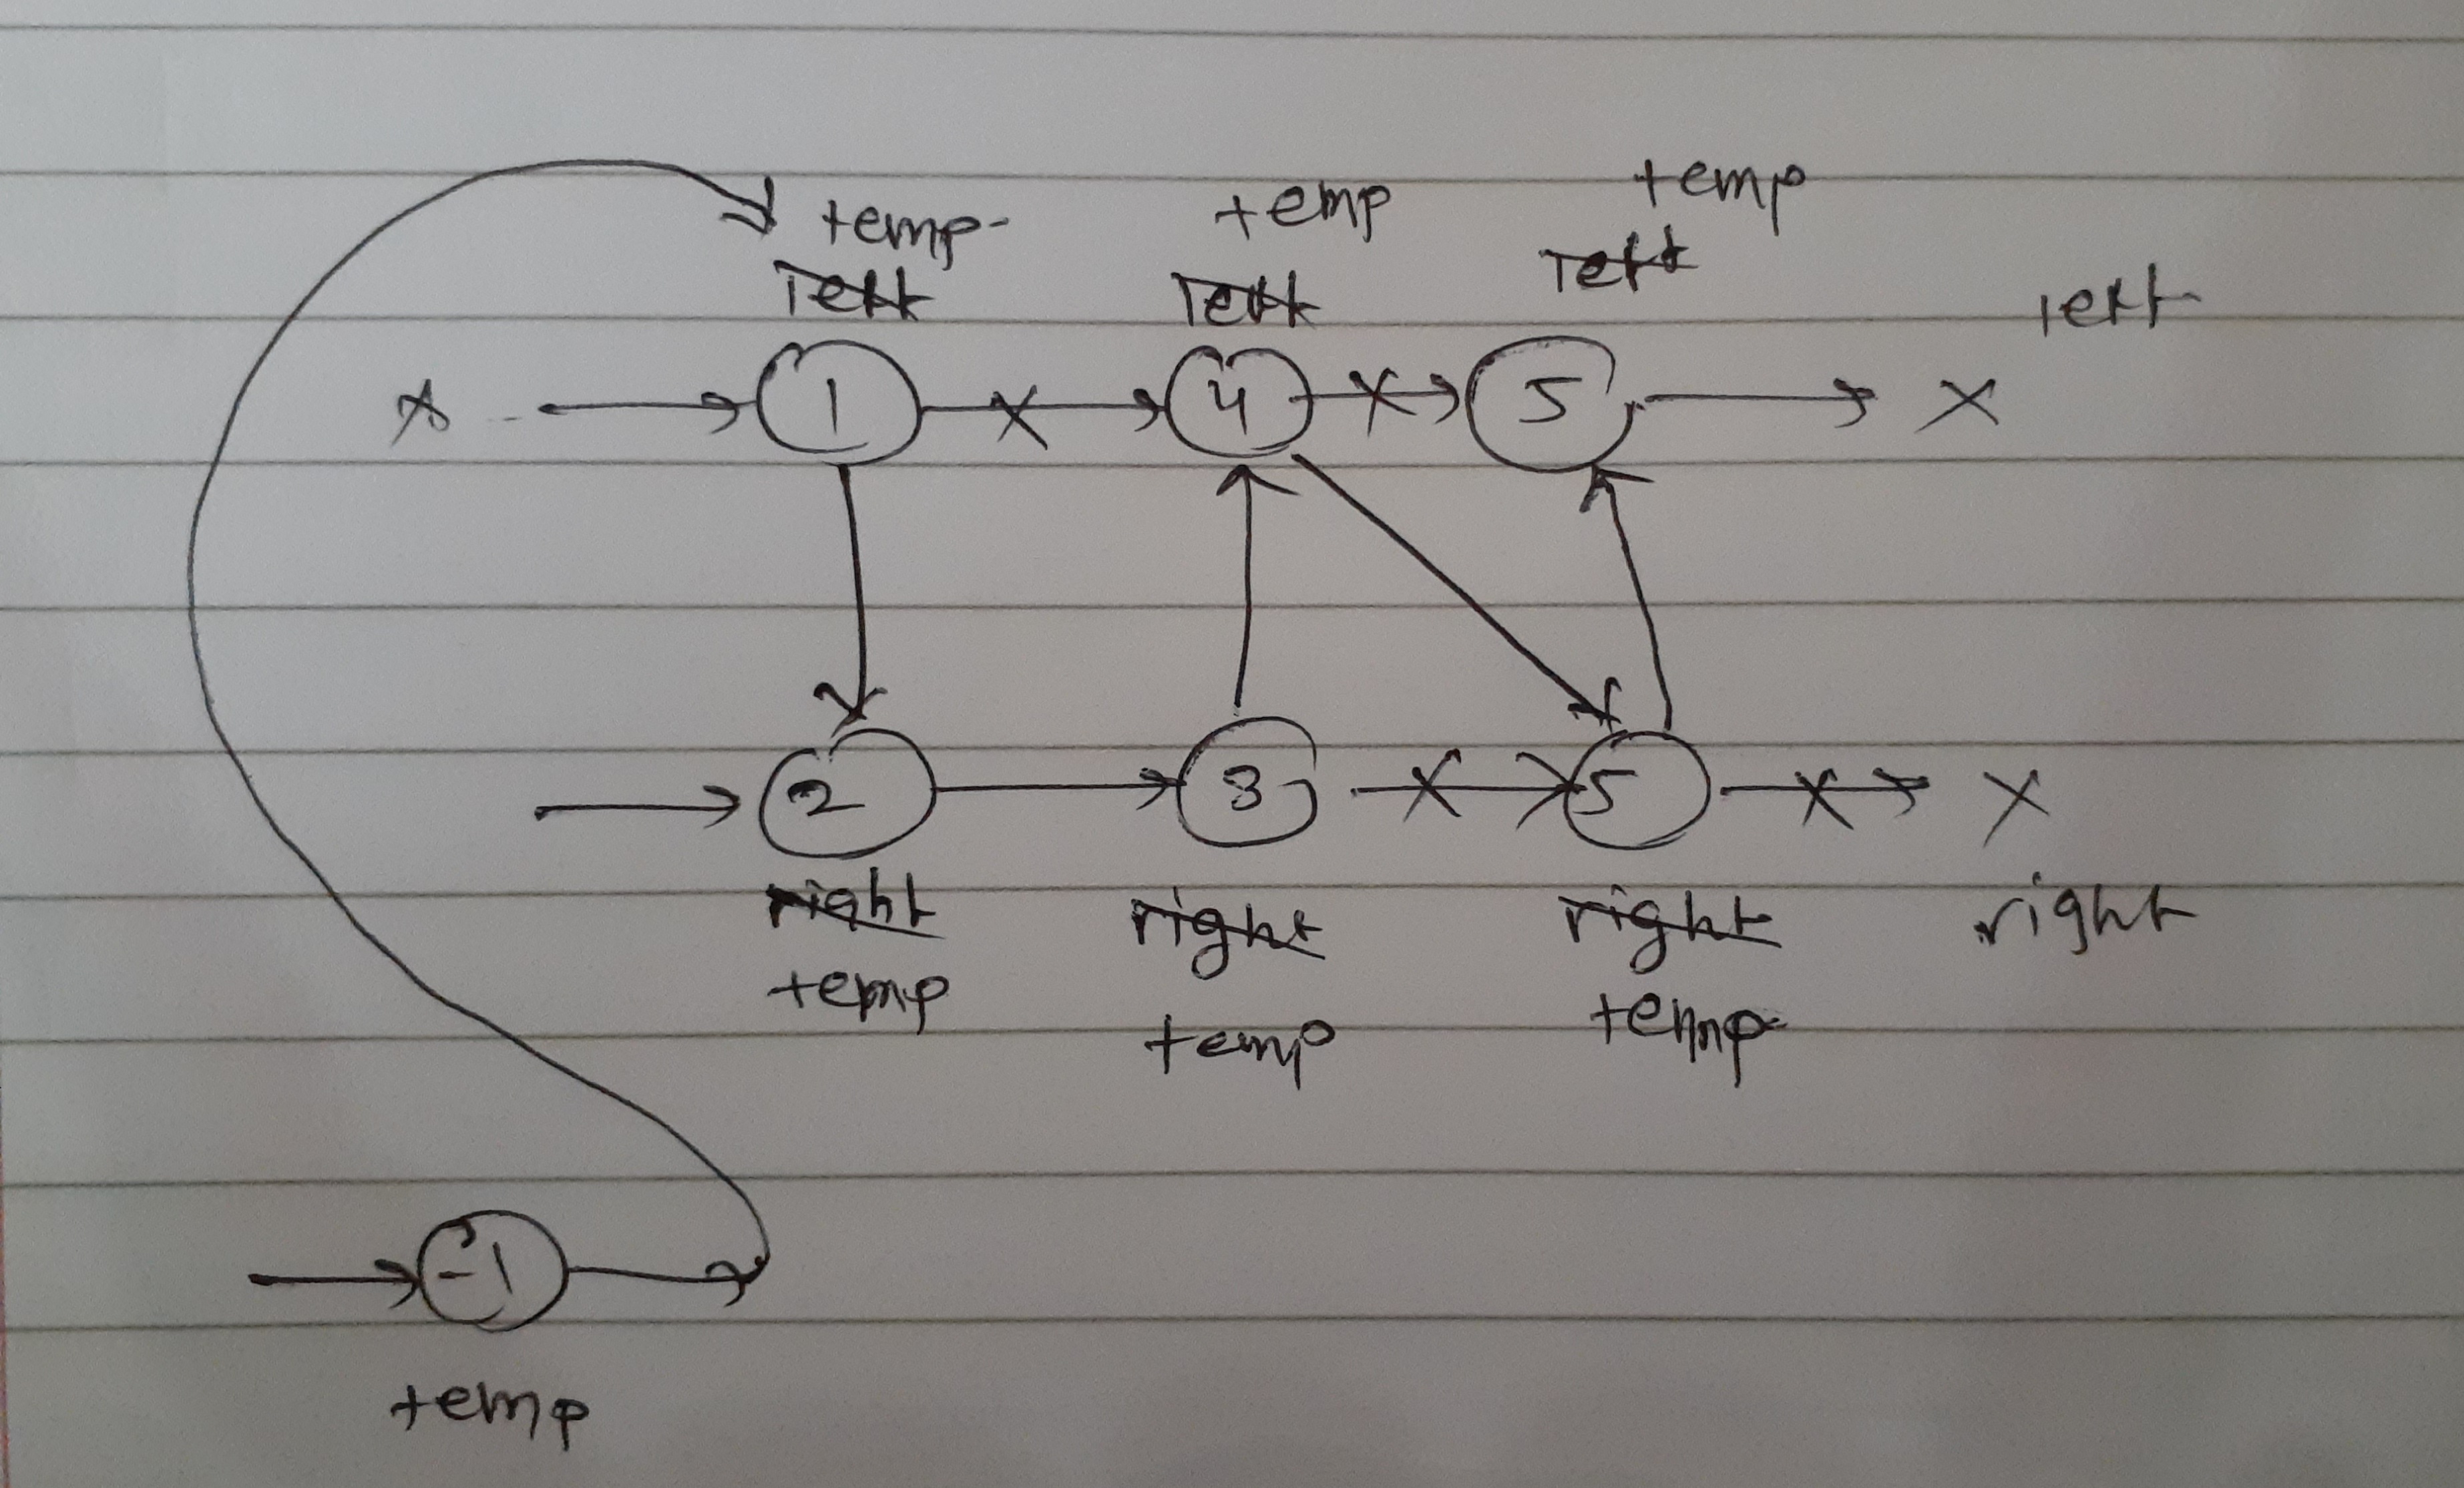 temp
temp temp
left left left left
x 1 x 4 x 5 x
2 3 x 5 x x
right right right right
temp temp temp
-1
temp